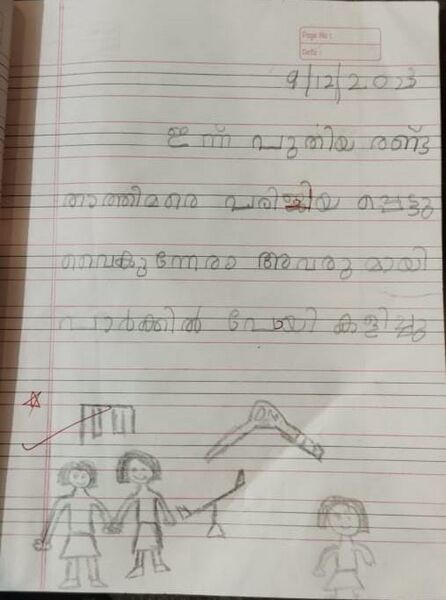 Page No :
Date :
9/12/2023
ഇന്ന് പുതിയ രണ്ട്
താത്തിമരെ പ്പെട്ടു
വൈകുന്നേരാ അവരുമായി
പാർക്കിൽ പോയി കളിച്ചു